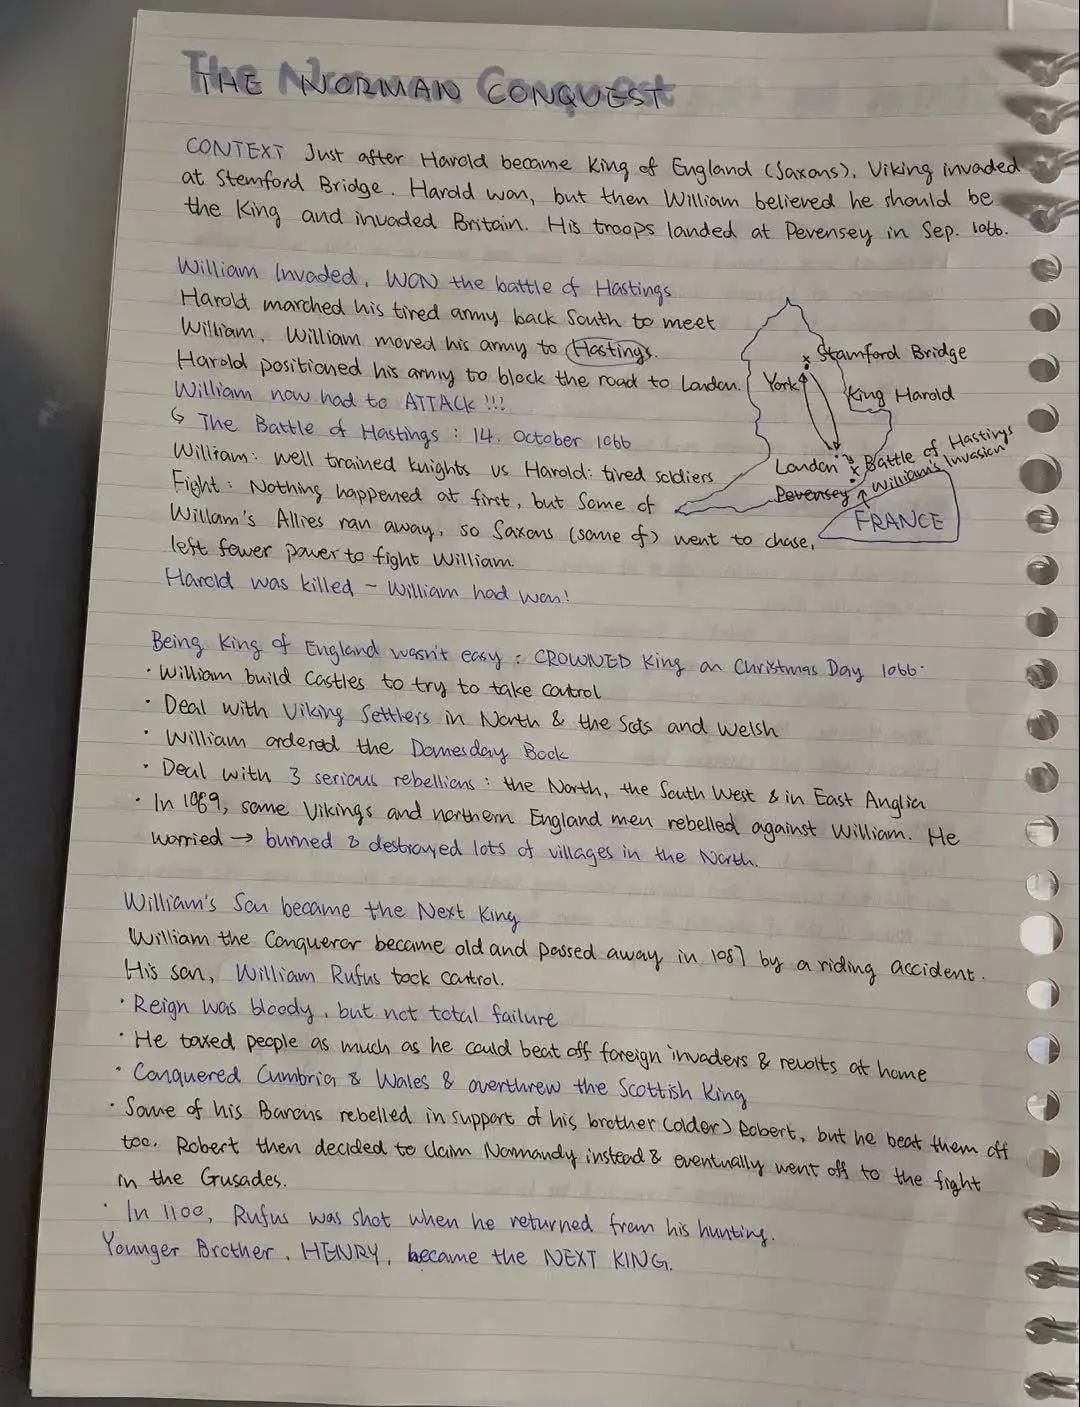 The Norman Conquest
THE NORMAN CONQUEST
CONTEXT Just after Harold became King of England (Saxons), Viking invaded
at Stemford Bridge. Harold won, but then William believed he should be
the King and invaded Britain. His troops landed at Pevensey in Sep. 1066.
William Invaded, WON the battle of Hastings
Harold marched his tired army back South to meet
William, William moved his army to Hastings.
Harold positioned his army to block the road to London.
William now had to ATTACK !!!
↳ The Battle of Hastings : 14. October 1066
William: well trained knights vs Harold: tired soldiers
Fight : Nothing happened at first, but some of
Willam's Allies ran away, so Saxons (some of) went to chase,
left fewer power to fight William.
Harold was killed - William had won!
Stamford Bridge
York
King Harold
London
Battle of Hastings
Pevensey
William's Invasion
FRANCE
Being King of England wasn't easy : CROWNED King on Christmas Day 1066.
· William build Castles to try to take control
· Deal with Viking Settlers in North & the Scots and Welsh
· William ordered the Domesday Book
· Deal with 3 serious rebellions : the North, the South West & in East Anglia
· In 1069, some Vikings and northern England men rebelled against William. He
worried → burned & destroyed lots of villages in the North.
William's Son became the Next King
William the Conqueror became old and passed away in 1087 by a riding accident.
His son, William Rufus took control.
· Reign was bloody, but not total failure
· He taxed people as much as he could beat off foreign invaders & revolts at home
· Conquered Cumbria & Wales & overthrew the Scottish King
· Some of his Barons rebelled in support of his brother (older) Robert, but he beat them off
too. Robert then decided to claim Normandy instead & eventually went off to the fight
in the Crusades.
· In 1100, Rufus was shot when he returned from his hunting.
Younger Brother, HENRY, became the NEXT KING.